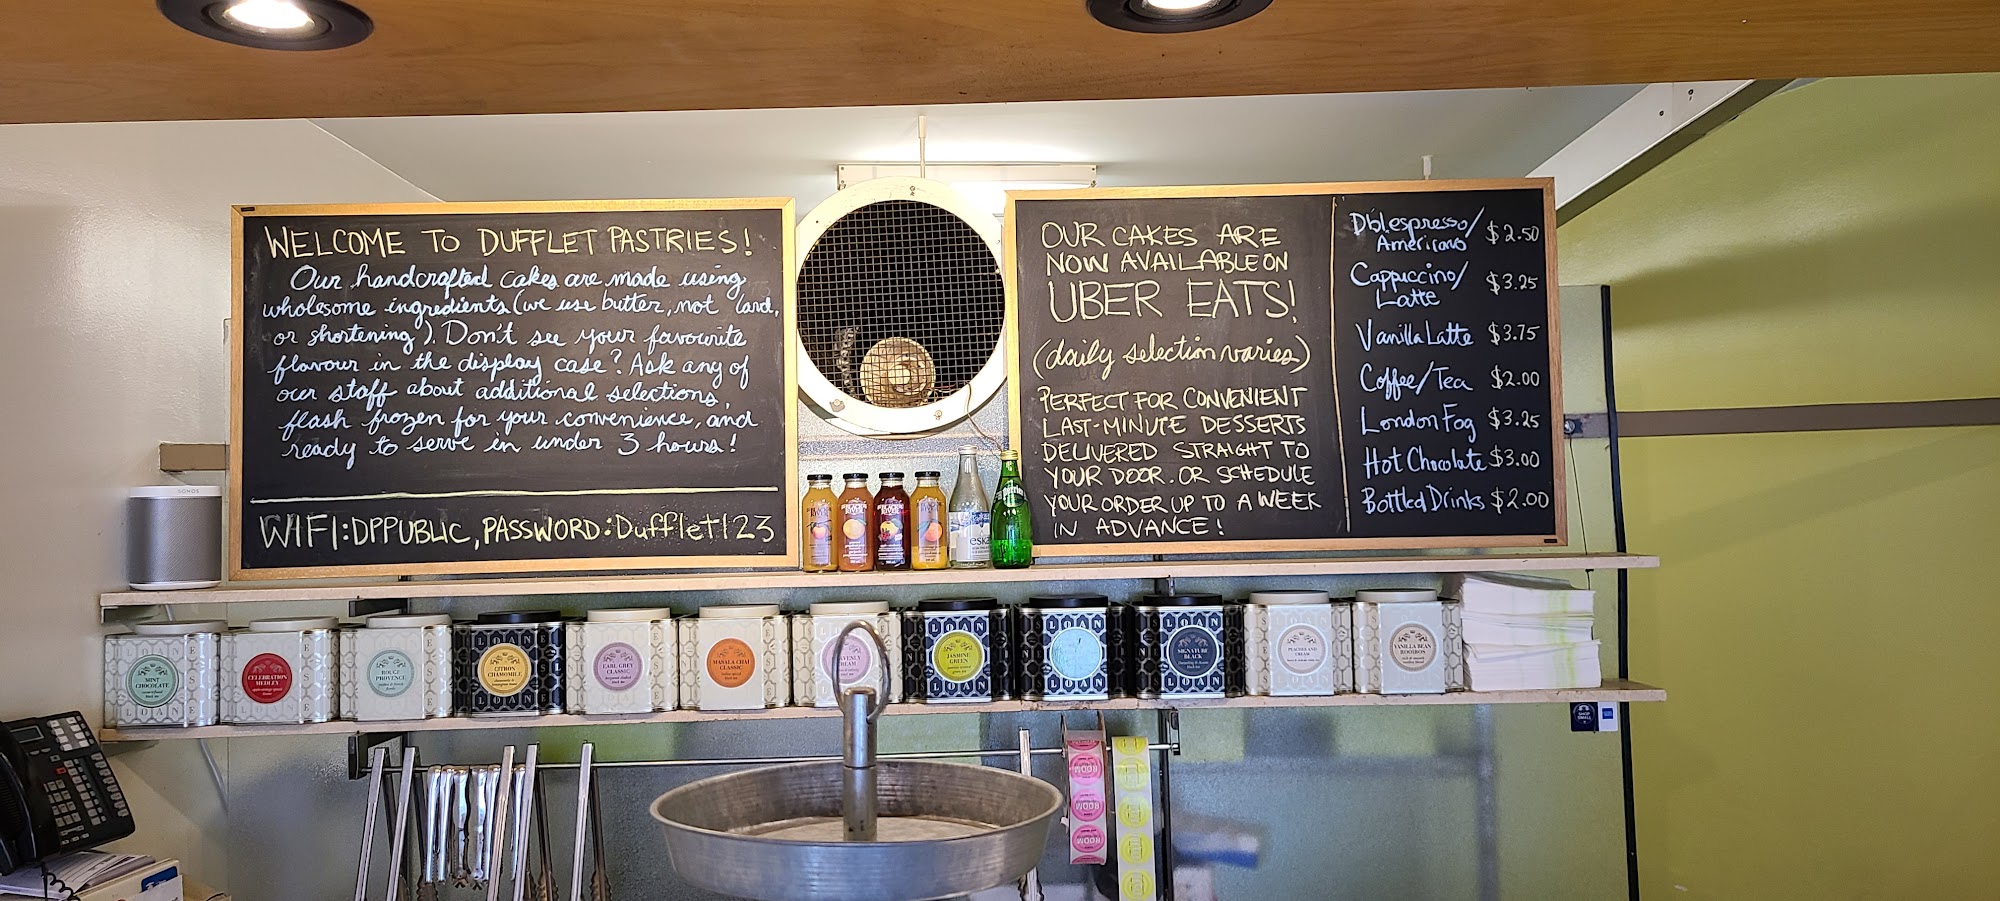 WELCOME TO DUFFLET PASTRIES!
Our handcrafted cakes are made using
wholesome ingredients (we use butter, not lard,
or shortening). Don't see your favourite
flavour in the display case? Ask any of
our staff about additional selections,
flash frozen for your convenience, and
ready to serve in under 3 hours!
WIFI: DPPUBLIC, PASSWORD: Dufflet123
OUR CAKES ARE
NOW AVAILABLE ON
UBER EATS!
(daily selection varies)
PERFECT FOR CONVENIENT
LAST-MINUTE DESSERTS
DELIVERED STRAIGHT TO
YOUR DOOR. OR SCHEDULE
YOUR ORDER UP TO A WEEK
IN ADVANCE!
Dbl.espresso/
Americano $2.50
Cappuccino/
Latte $3.25
Vanilla Latte $3.75
Coffee/Tea $2.00
London Fog $3.25
Hot Chocolate $3.00
Bottled Drinks $2.00
SONOS
eska
perrier
MINT
CHOCOLATE
CELEBRATION
MEDLEY
ROUGE
PROVENCE
CITRON
CHAMOMILE
EARL GREY
CLASSIC
MASALA CHAI
CLASSIC
CREAM
JASMINE
GREEN
SIGNATURE
BLACK
PEACHES AND
CREAM
VANILLA BEAN
ROOIBOS
SLOANE
SHOP
SMALL
ROOM